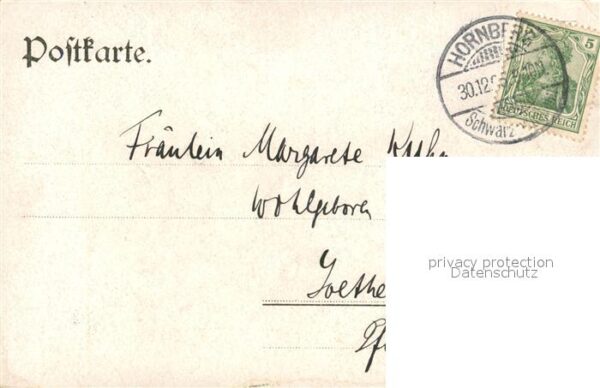 Postkarte.
HORNBERG
30.12.
Schwarz
5
DEUTSCHES REICH
Fräulein Margarete
Wohlgeboren
Goethe
privacy protection
Datenschutz